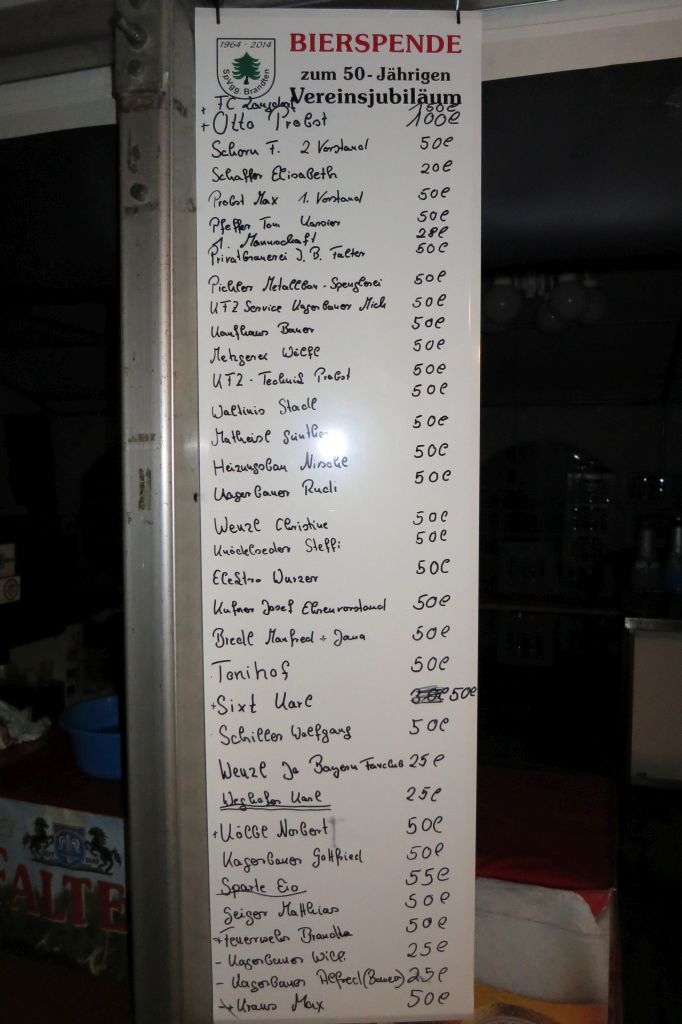 1964 - 2014
SpVgg. Brandten
BIERSPENDE
zum 50-Jährigen
Vereinsjubiläum
+ FC Langdorf 100€
+ Otto Probst 100€
Schorn F. 2 Vorstand 50€
Schaffer Elisabeth 20€
Probst Max 1. Vorstand 50€
Pfeffer Tom Kassier 50€
1. Mannschaft 28€
Privatbrauerei J. B. Falter 50€
Pichler Metallbau - Spenglerei 50€
KFZ Service Kagerbauer Mich 50€
Kaufhaus Bauer 50€
Metzgerei Wölfl 50€
KFZ - Technik Probst 50€
Waltinis Stadl 50€
Matheisl Günther 50€
Heizungsbau Nirschl 50€
Kagerbauer Rudi 50€
Wenzl Christine 50€
Knöckleseder Steffi 50€
Elektro Wurzer 50€
Kufner Josef Ehrenvorstand 50€
Biedl Manfred + Jana 50€
Tonihof 50€
+ Sixt Karl 50€
Schiller Wolfgang 50€
Wenzl Jo Bayern Fanclub 25€
Weghofer Karl 25€
+ Kölbl Norbert 50€
Kagerbauer Gottfried 50€
Sparte Eis 55€
Geiger Matthias 50€
+ Feuerwehr Brandten 50€
- Kagerbauer Willi 25€
- Kagerbauer Alfred (Bauer) 25€
+ Kraus Max 50€
FALTE